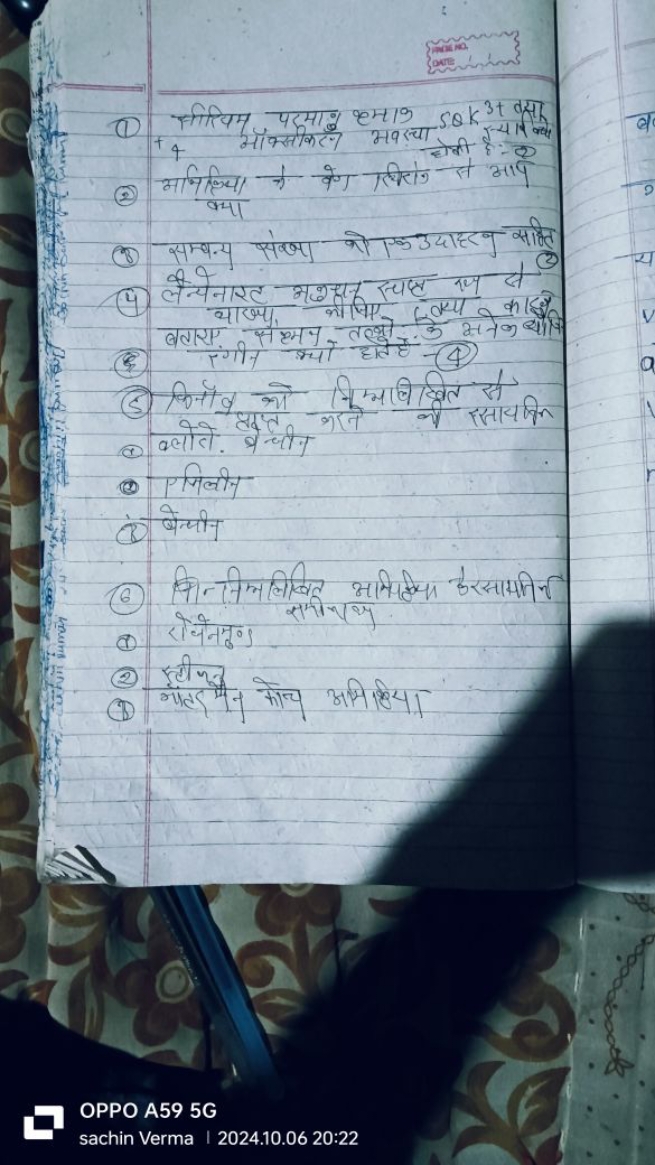 PAGE NO.
DATE: / /
① सीरियम परमाणु क्रमांक 58 K 3+ तथा
+4 ऑक्सीकरण अवस्था
होती है: ②
② अभिक्रिया के वेग स्थिरांक से आप
क्या
③ समन्वय संख्या को एक उदाहरण सहित
②
④ लैन्थेनाइट संकुचन स्पष्ट रूप से
व्याख्या कीजिए तथा कारण
बताएं. संक्रमण तत्वो के अनेक यौगिक
रंगीन क्यों होते है - ④
⑤ फिनॉल को निम्नलिखित से
प्राप्त करने की रसायनिक
① क्लोरो. बेन्जीन
② एनिलीन
③ बेन्जीन
⑥ निम्नलिखित अभिक्रिया के रसायनिक
समीकरण
① रोजेनमुण्ड
② स्टीफन
③ गॉटरमैन कोच अभिक्रिया
OPPO A59 5G
sachin Verma | 2024.10.06 20:22